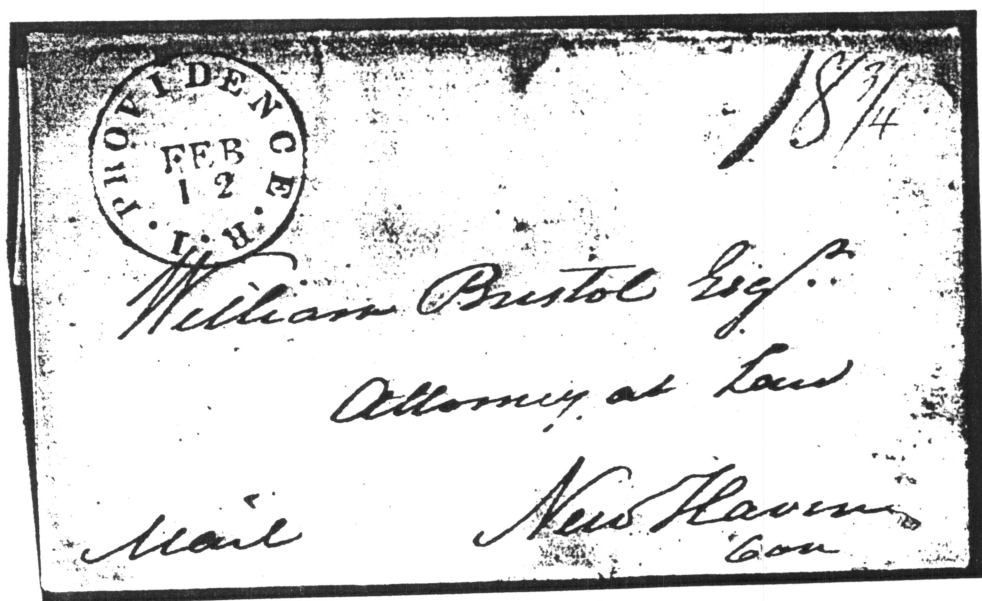 PROVIDENCE. R. I.
FEB
12
18 3/4
William Bristol Esqr.
Attorney at Law
Mail
New Haven
Con